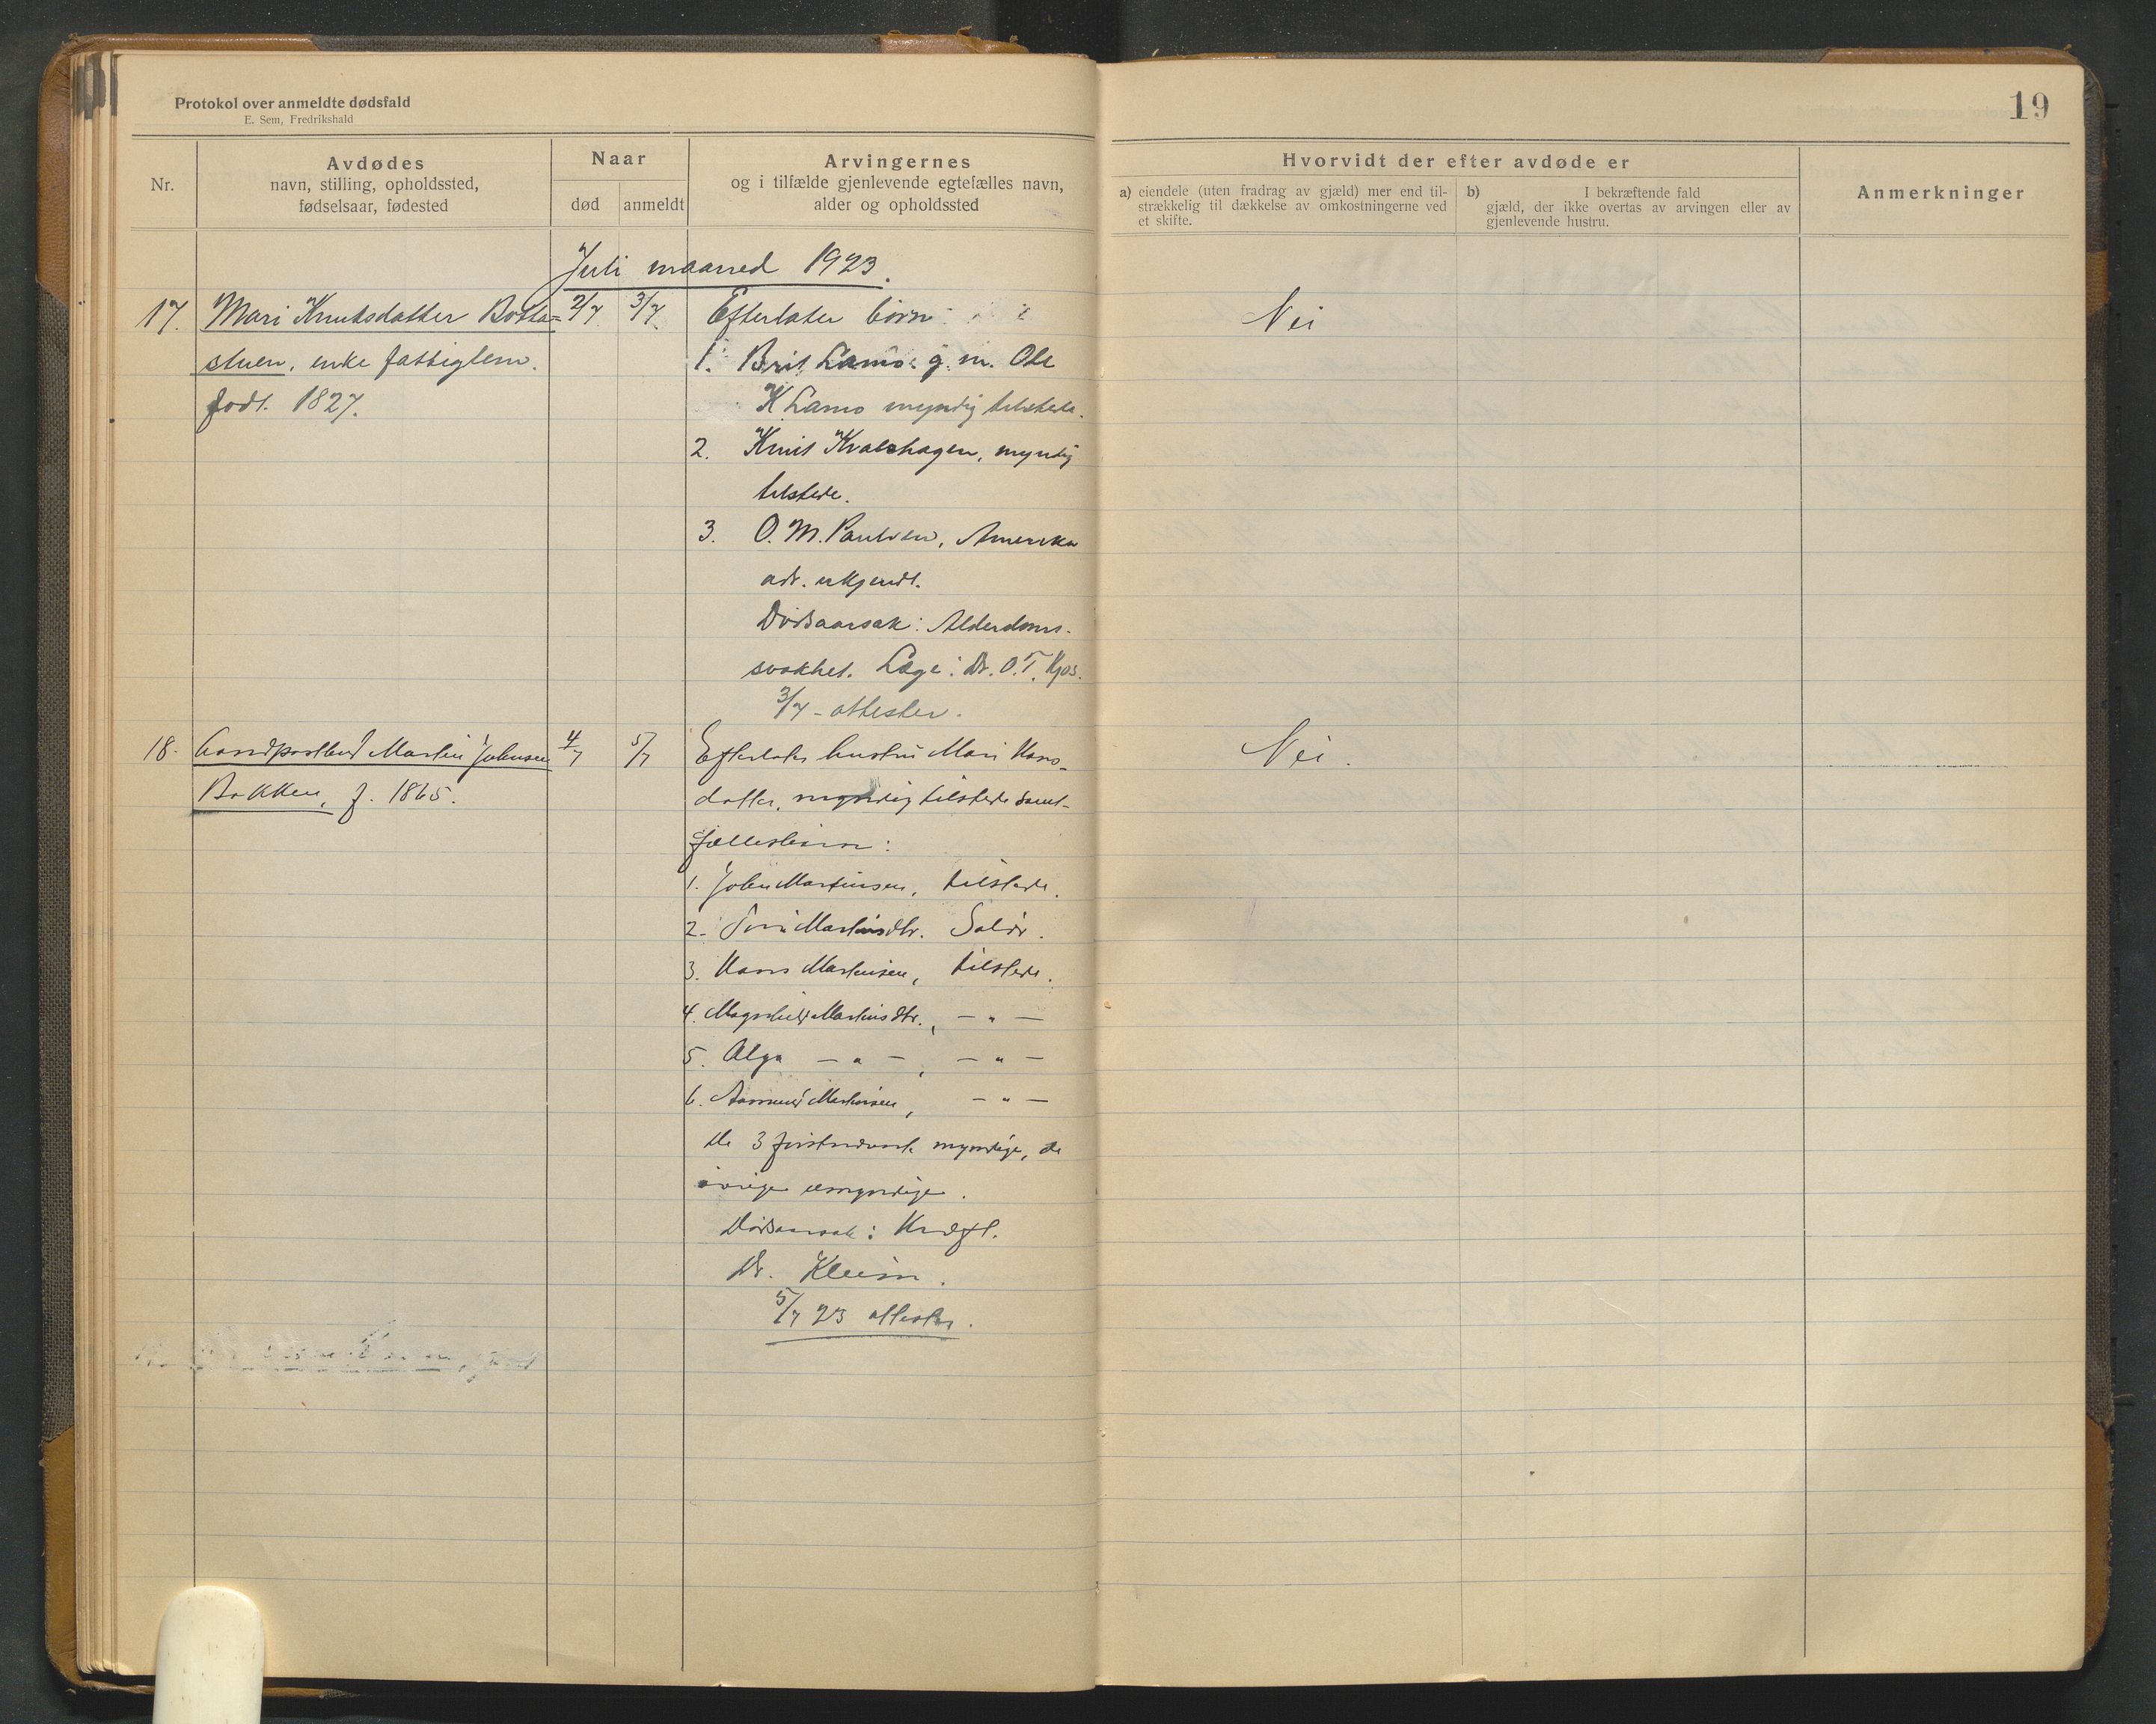 Protokol over anmeldte dødsfald
E. Sem, Fredrikshald
19
Nr.
Avdødes
navn, stilling, opholdssted,
fødselsaar, fødested
Naar
død
anmeldt
Arvingernes
og i tilfælde gjenlevende egtefælles navn,
alder og opholdssted
Hvorvidt der efter avdøde er
a) eiendele (uten fradrag av gjæld) mer end til-
strækkelig til dækkelse av omkostningerne ved
et skifte.
b) I bekræftende fald
gjæld, der ikke overtas av arvingen eller av
gjenlevende hustru.
Anmerkninger
Juli maaned 1923.
17. Mari Knutsdatter
stuen, enke fattiglem.
født 1827.
2/7
3/7
Efterlater børn
1. Brit Lamo g. m. Ole
K Lamo myndig tilstede.
2. Knut Kvalshagen, myndig
tilstede.
3. O. M. Paulsen, Amerika
adr. ukjendt.
Dødsaarsak: Alderdoms-
svakhet. Læge: Dr. O. T. Kjos.
3/7 - attester.
Nei
18. Landpostbud Martin Johnsen
Bakken, f. 1865.
4/7
5/7
Efterlater hustru Mari Hans-
datter, myndig tilstede samt
fællesbørn:
1. John Martinsen, tilstede.
2. Martinsdtr. Solør.
3. Hans Martinsen, tilstede.
4. Magnhild Martinsdtr., - " -
5. Olga - " -, - " -
6. Aamund Martinsen, - " -
De 3 førstnævnte myndige, de
øvrige umyndige.
Dødsaarsak: Kræft.
Dr.
5/7 23 attester.
Nei.